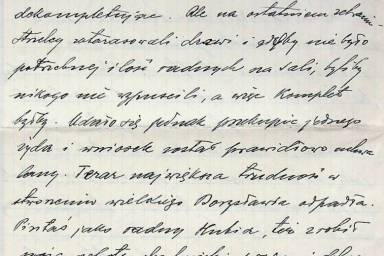 dekompletujące. Ale na ostatniem zebraniu
Strzelcy zatarasowali drzwi i gdyby nie było
potrzebnej ilości radnych na sali, byliby
nikogo nie wypuścili, a więc komplet
byłby. Udało się jednak przekupić jednego
żyda i wniosek został prawidłowo uchwa
lony. Teraz największa trudność w
stworzeniu wielkiego Borysławia odpadła.
jako radny też zrobił